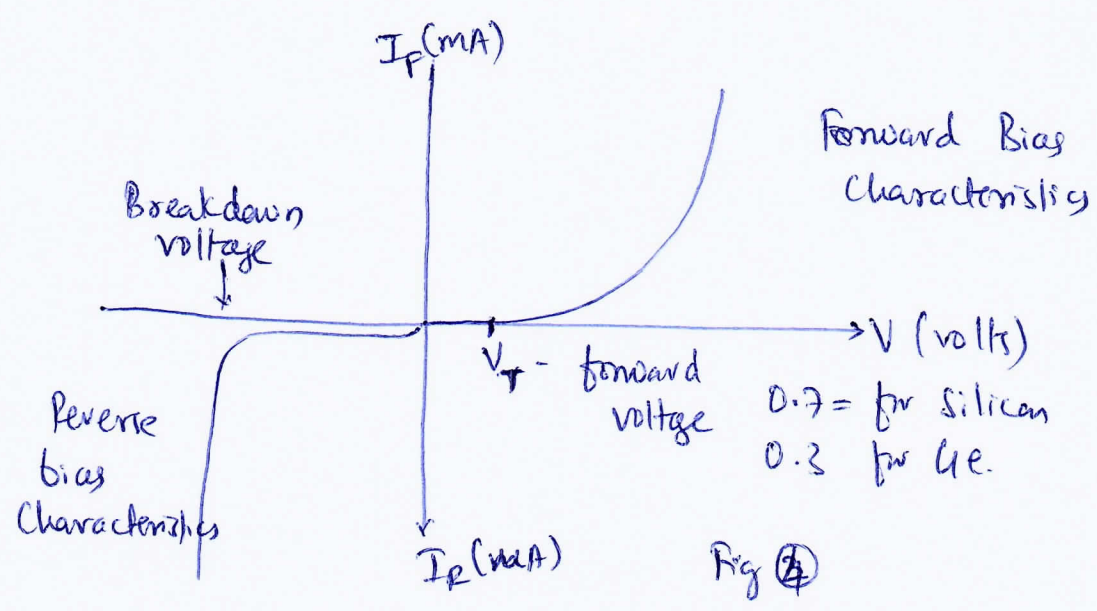 I_F (mA)
Forward Bias
Characteristics
Breakdown
voltage
V_T - forward
voltage
V (volts)
0.7 = for Silicon
0.3 for Ge.
Reverse
bias
Characteristics
I_R
Fig